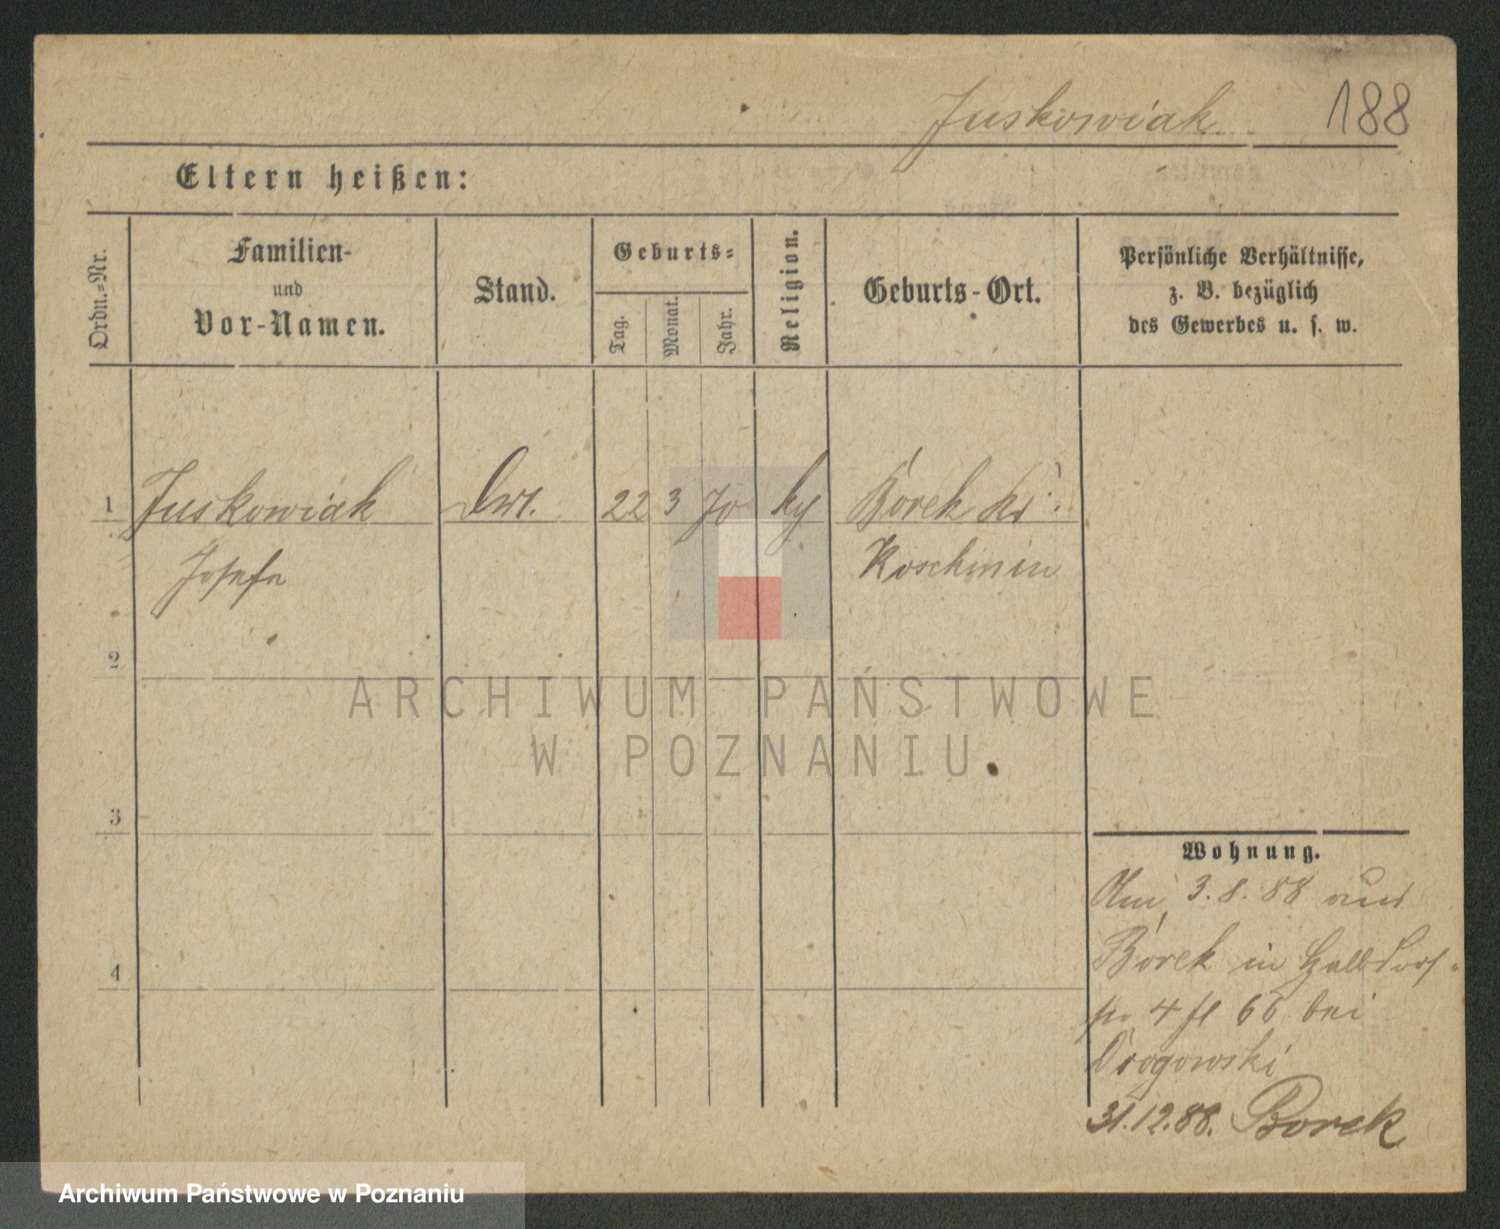 Juskowiak 188
Eltern heißen:
Ordn.-Nr.
Familien-
und
Vor-Namen.
Stand.
Geburts-
Tag.
Monat.
Jahr.
Religion.
Geburts-Ort.
Persönliche Verhältnisse,
z. B. bezüglich
des Gewerbes u. s. w.
1 Juskowiak 22 3 70 Borek Kr.
Josefa Koschmin
2
3
4
ARCHIWUM PAŃSTWOWE
W POZNANIU
Wohnung.
Am 3.8.88 aus
Borek in Halbdorf-
4 66 bei
Drogowski
31.12.88. Borek
Archiwum Państwowe w Poznaniu